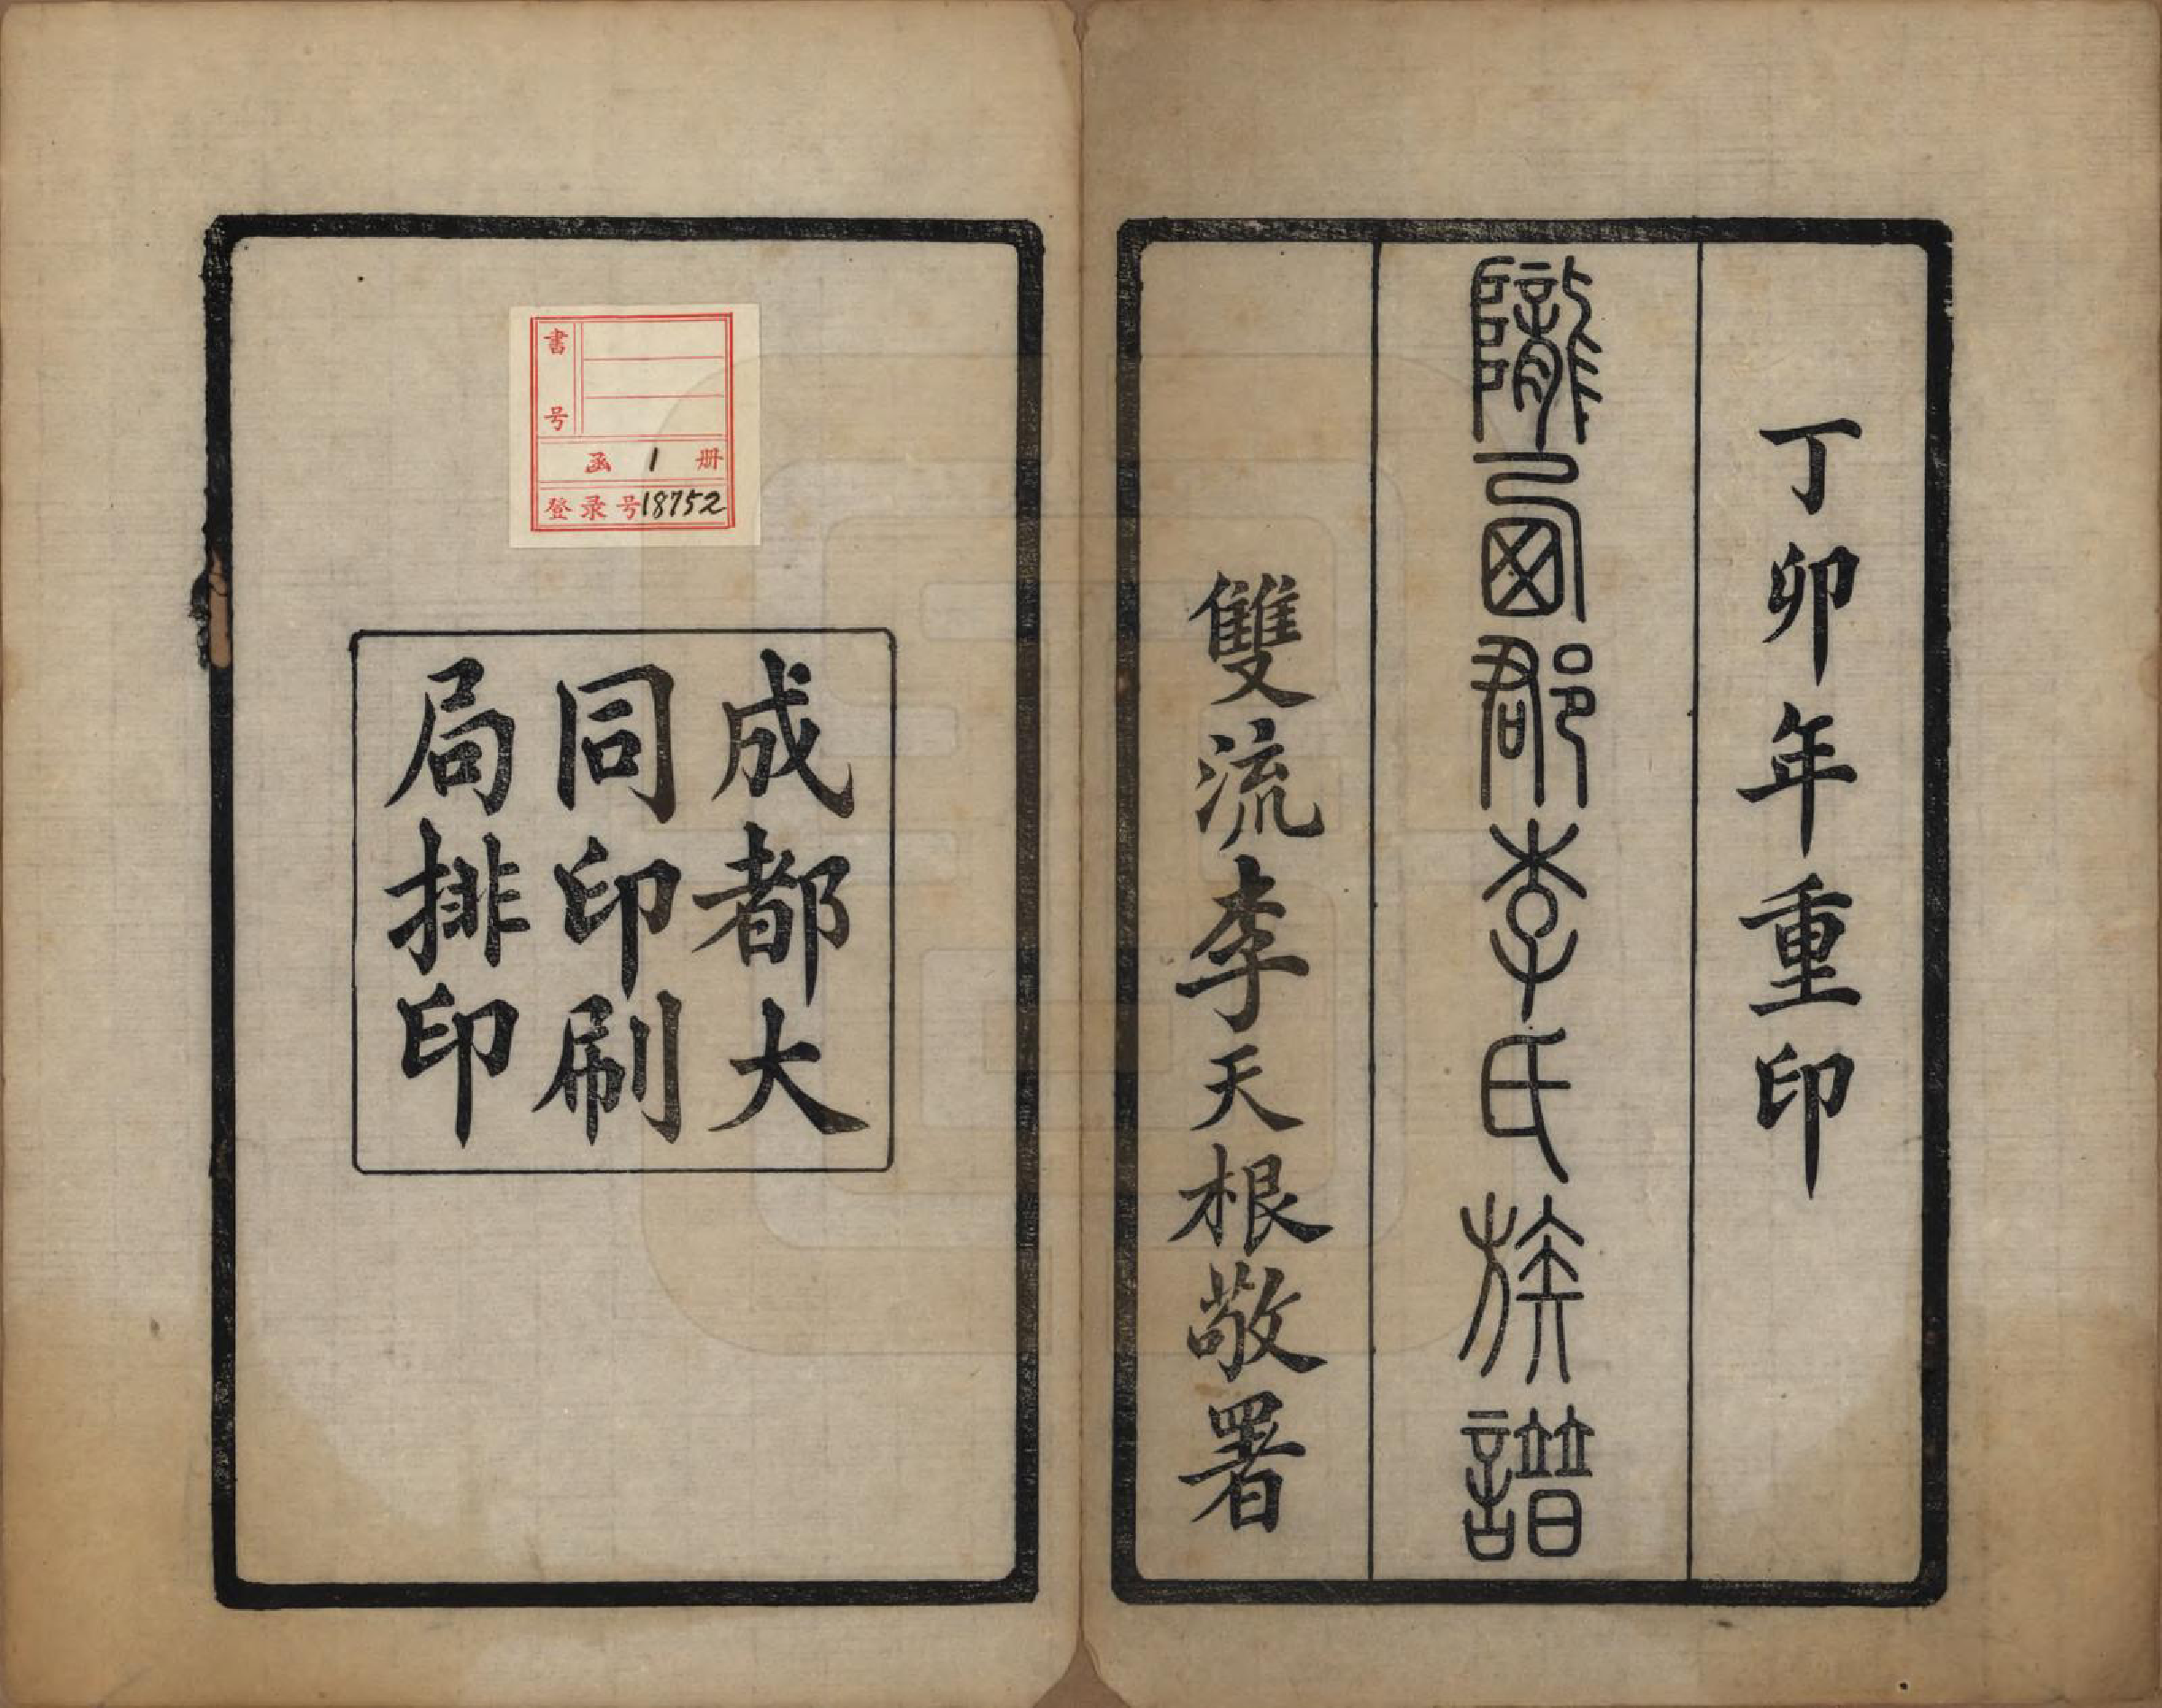 丁卯年重印
隴西郡李氏族譜
雙流李天根敬署
書号
函 1 册
登录号18752
成都大
同印刷
局排印